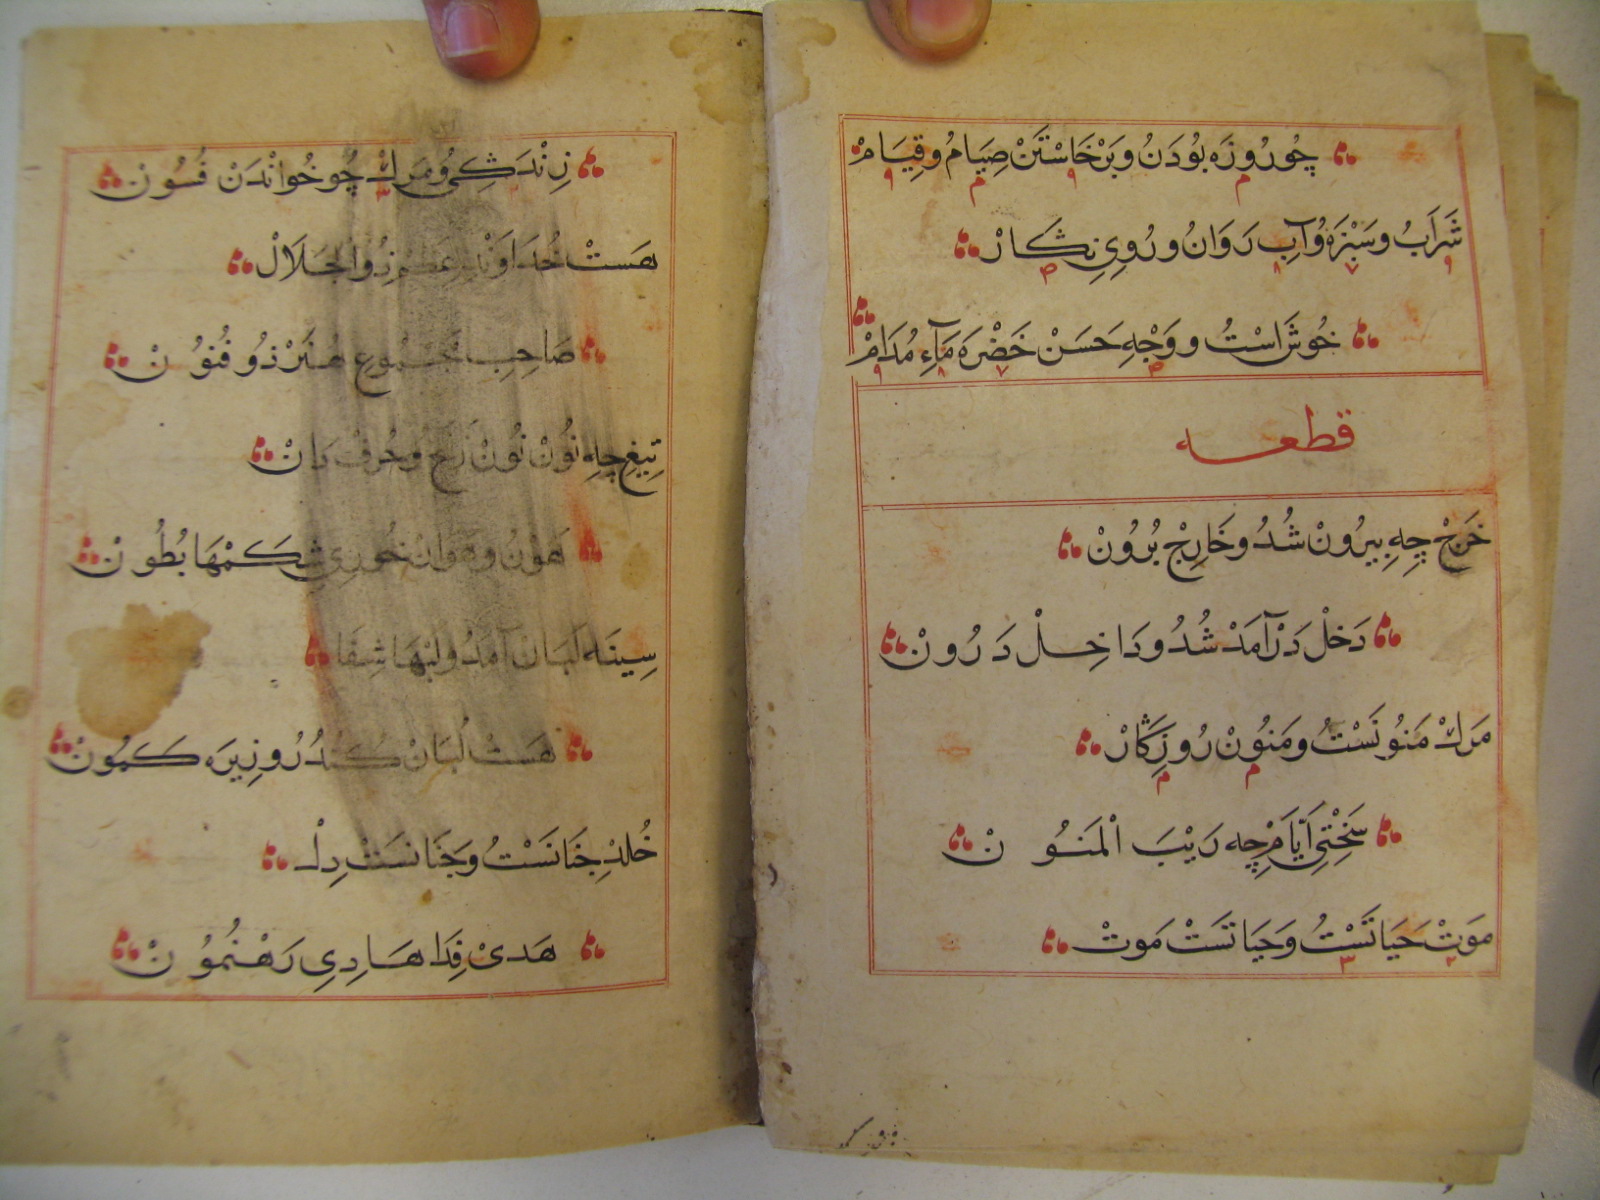 چُو رُوزَه بُودَنُ وبَرْخَاسْتَنْ صِيَامُ و قِيَامْ
شَرَابُ و سَبْزَه وُآبِ رَوَانُ و رُويِ نِكَارْ
خُوش اسْتُ و وَجْهِ حَسَنْ خَضْرَه مَآءِ مُدَامْ
قطعه
خَرَجْ چِهِ بيرُونْ شُدُ و خَارِجْ بُرُونْ
دَخَلْ دَرْآمَدْ شُدُ و دَاخِلْ دَرُونْ
مَرك مَنُونَسْتُ و مَنُونْ رُوزِكَارْ
سَخْتِيِ اَيَّامْ چِه رَيْبَ الْمَنُونْ
مَوتْ حَيَاتَسْتُ وَحَيَاتَسْتْ مَوتْ
زِنْدَكِي وُ مَرك چُو خُوانْدَنْ فُسُونْ
هَستْ خُدَاوَنْدِ ذُوالْجَلَالْ
صَاحِبِ مَجْمُوعِ هُنَرْ ذُو فُنُونْ
تِيغْ چِه نُونْ نُونْ وَحَرفْ دَانْ
هَونُ خُورِي شِكَمْهَا بُطُونْ
سِينَه لَبَانْ آمَدُ ولَبْهَا شِفَا
هَستْ لُبَانْ كُنْدُرُ و زِيرَه كَمُونْ
خُلْد جِنَانَسْتُ وَجَنَانَسْتْ دِلْ
هَدىْ فِدَا هَادِي رَهْنُمُونْ